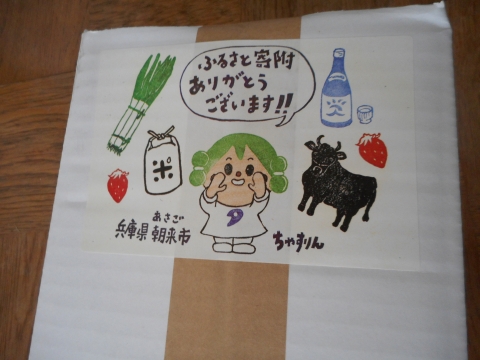 ふるさと寄附
ありがとう
ございます!!
米
あさご
兵庫県 朝来市
ちゃすりん